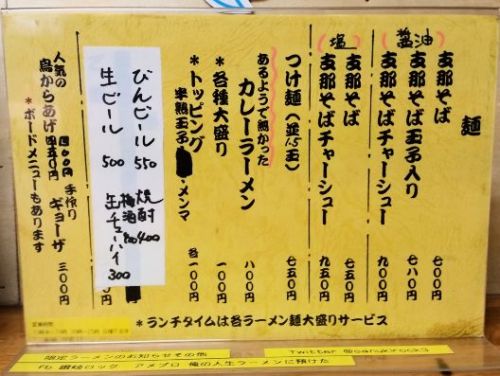 麺
(醤油)
支那そば 七〇〇円
支那そば玉子入り 七八〇円
支那そばチャーシュー 九〇〇円
(塩)
支那そば 七五〇円
支那そばチャーシュー 九五〇円
つけ麺(並1.5玉) 七五〇円
あるようで無かった
カレーラーメン 八〇〇円
*各種大盛り 一〇〇円
*トッピング 各一〇〇円
半熟玉子 メンマ
びんビール 550
生ビール 500
焼酎 400
梅酒
生チューハイ 300
人気の
鳥からあげ
手作り
ギョーザ 三〇〇円
*ボードメニューもあります
*ランチタイムは各ラーメン麺大盛りサービス
営業時間
限定ラーメンのお知らせその他
fb 讃岐ロック アメブロ 俺の人生ラーメンに預けた
Twitter @sanukirock3